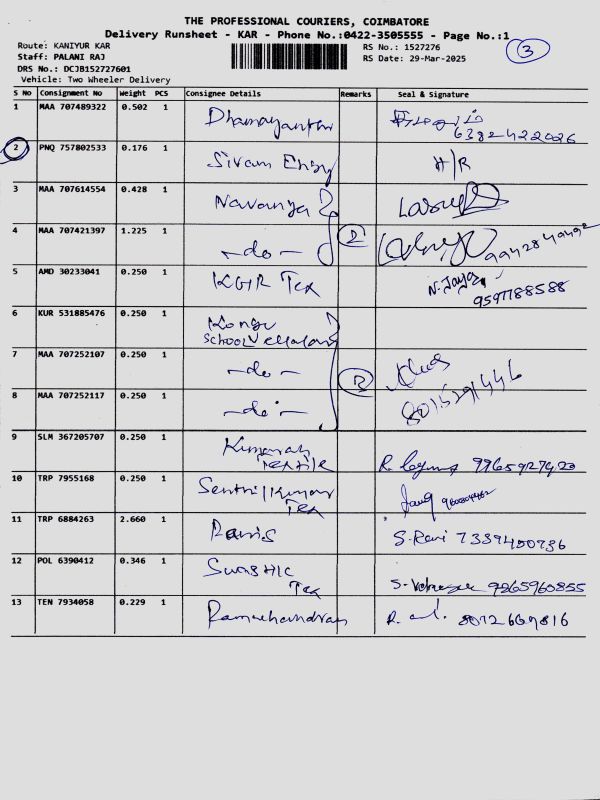 THE PROFESSIONAL COURIERS, COIMBATORE
Delivery Runsheet - KAR - Phone No.:0422-3505555 - Page No.:1
Route: KANIYUR KAR RS No.: 1527276 3
Staff: PALANI RAJ RS Date: 29-Mar-2025
DRS No.: DCJB152727601
Vehicle: Two Wheeler Delivery
S No Consignment No Weight PCS Consignee Details Remarks Seal & Signature
1 MAA 707489322 0.502 1 Dhamayanthi
6382422026
2 PNQ 757802533 0.176 1 Sivam Engg H/R
3 MAA 707614554 0.428 1 Navanya
4 MAA 707421397 1.225 1 -do- 9942849492
5 AMD 30233041 0.250 1 KGR Tex N. Jaya
9597788588
6 KUR 531885476 0.250 1 Kongu
SCHOOL Vellalar
7 MAA 707252107 0.250 1 -do-
8 MAA 707252117 0.250 1 -do- 8015291446
9 SLM 367205707 0.250 1 Kumaran
TEXTILE
10 TRP 7955168 0.250 1 Senthil Kumar
Tex
11 TRP 6884263 2.660 1 Ravis S. Ravi 7339400736
12 POL 6390412 0.346 1 Swasthic
Tex 9265960855
13 TEN 7934058 0.229 1 Ramachandran 8072669816